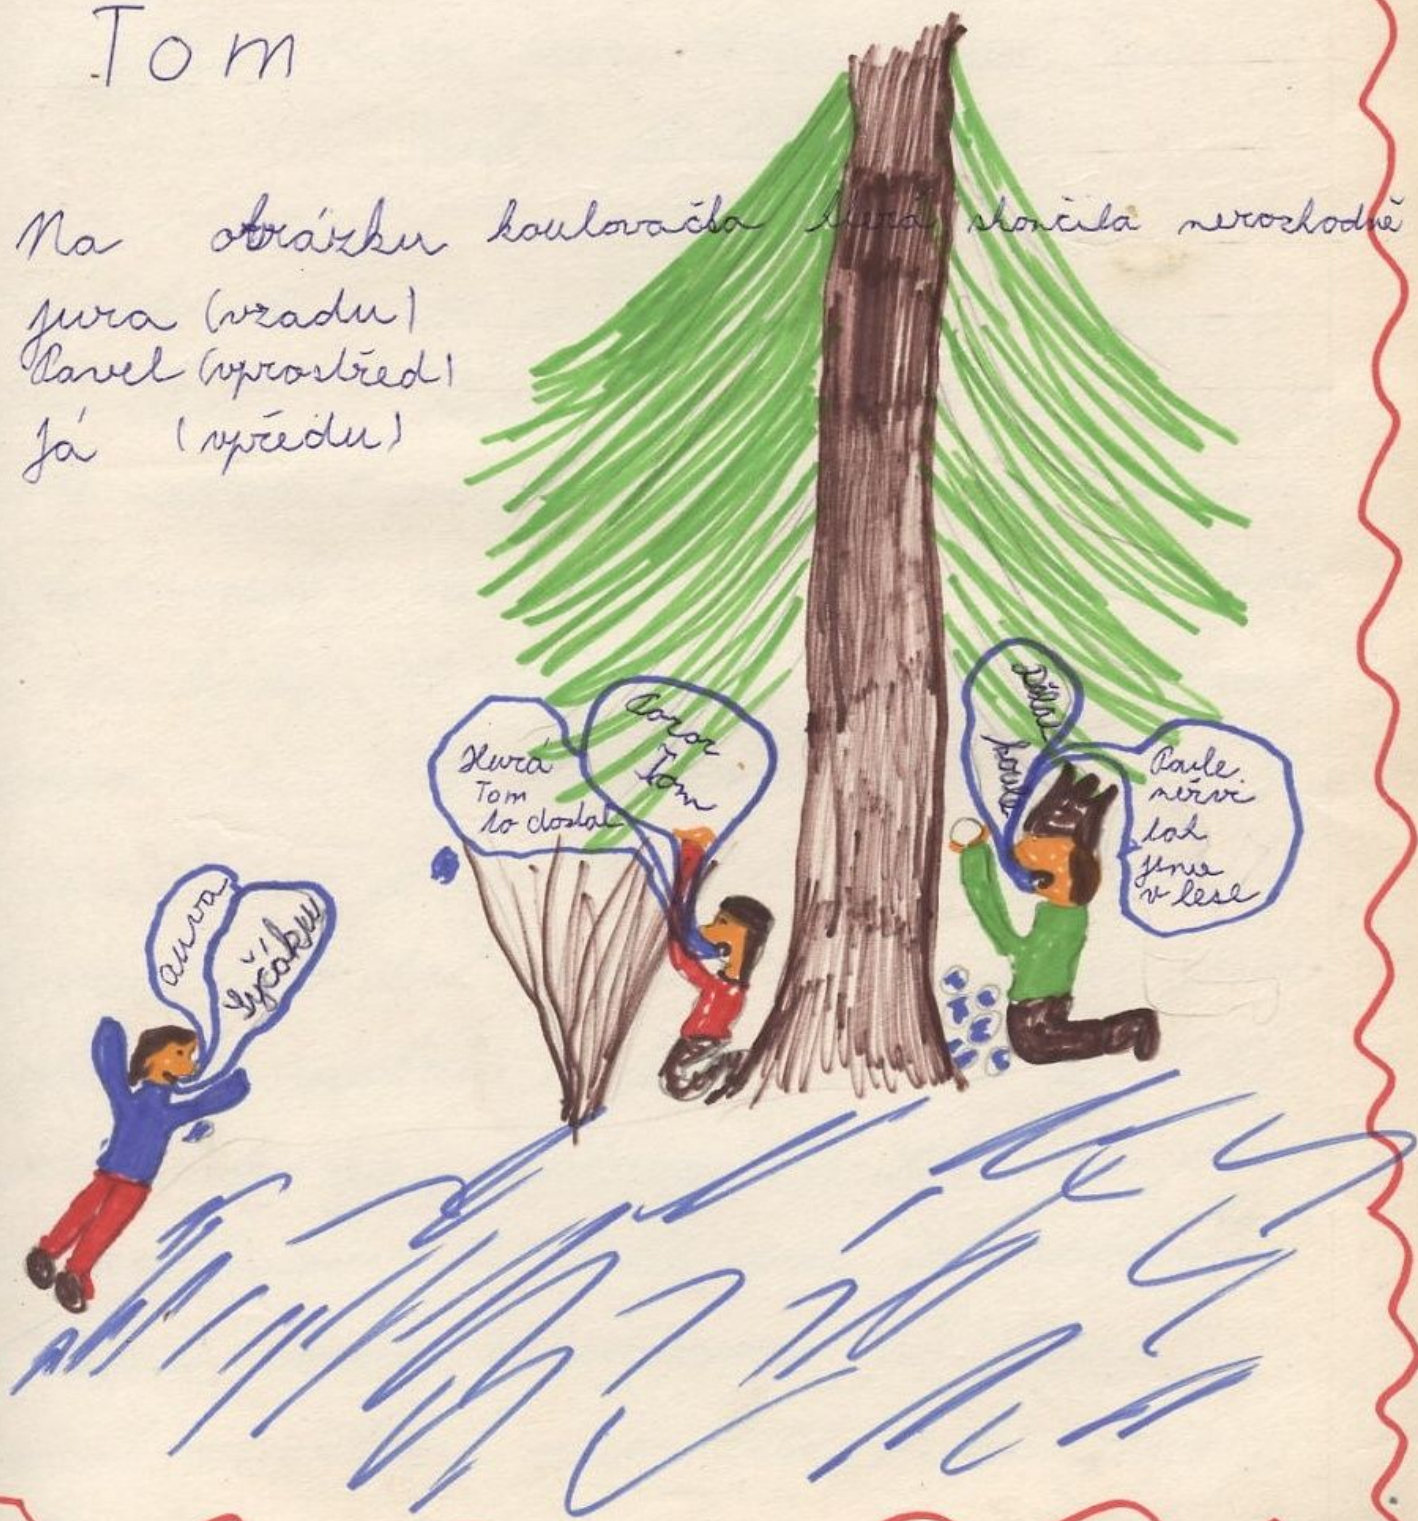 Tom
Na obrázku koulovačka která skončila nerozhodně
jura (vzadu)
Pavel (vprostřed)
Já (vpředu)
Hurá
Tom
to dostal
Pozor
Tom
Dělat
koule
Pavle
neřvi
tak
jsme
v lese
auva
syčáku